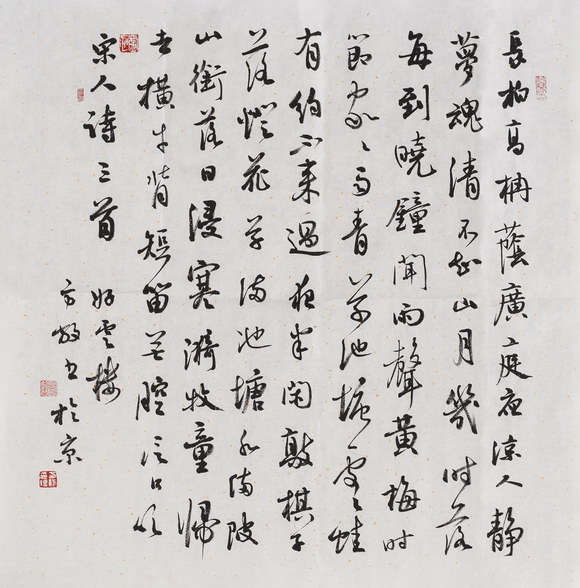 長柏高柟蔭廣庭夜涼人靜
夢魂清不知山月幾时落
每到曉鐘聞雨聲黃梅时
節家々雨青草池塘處々蛙
有約不來過夜半閑敲棋子
落燈花草滿池塘水滿陂
山銜落日浸寒漪牧童歸
去橫牛背短笛無腔信口吹
宋人詩三首
书於京